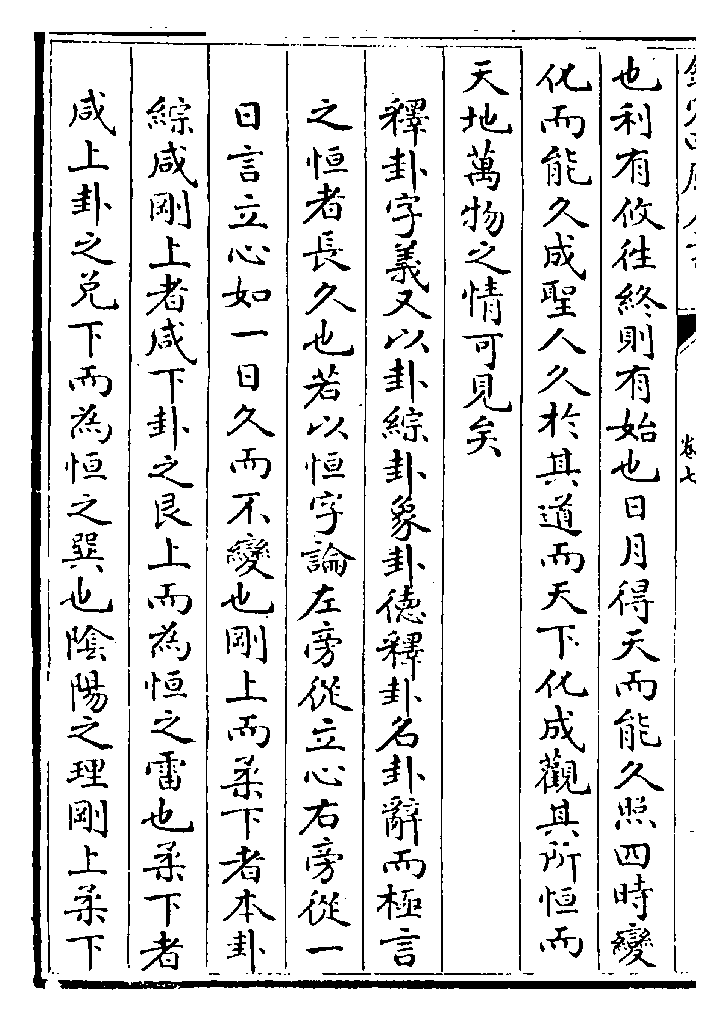 卷七
也利有攸往終則有始也日月得天而能久照四時變
化而能久成聖人久於其道而天下化成觀其所恒而
天地萬物之情可見矣
釋卦字義又以卦綜卦象卦德釋卦名卦辭而極言
之恒者長久也若以恒字論左旁從立心右旁從一
日言立心如一日久而不變也剛上而柔下者本卦
綜咸剛上者咸下卦之艮上而為恒之雷也柔下者
咸上卦之兌下而為恒之巽也陰陽之理剛上柔下